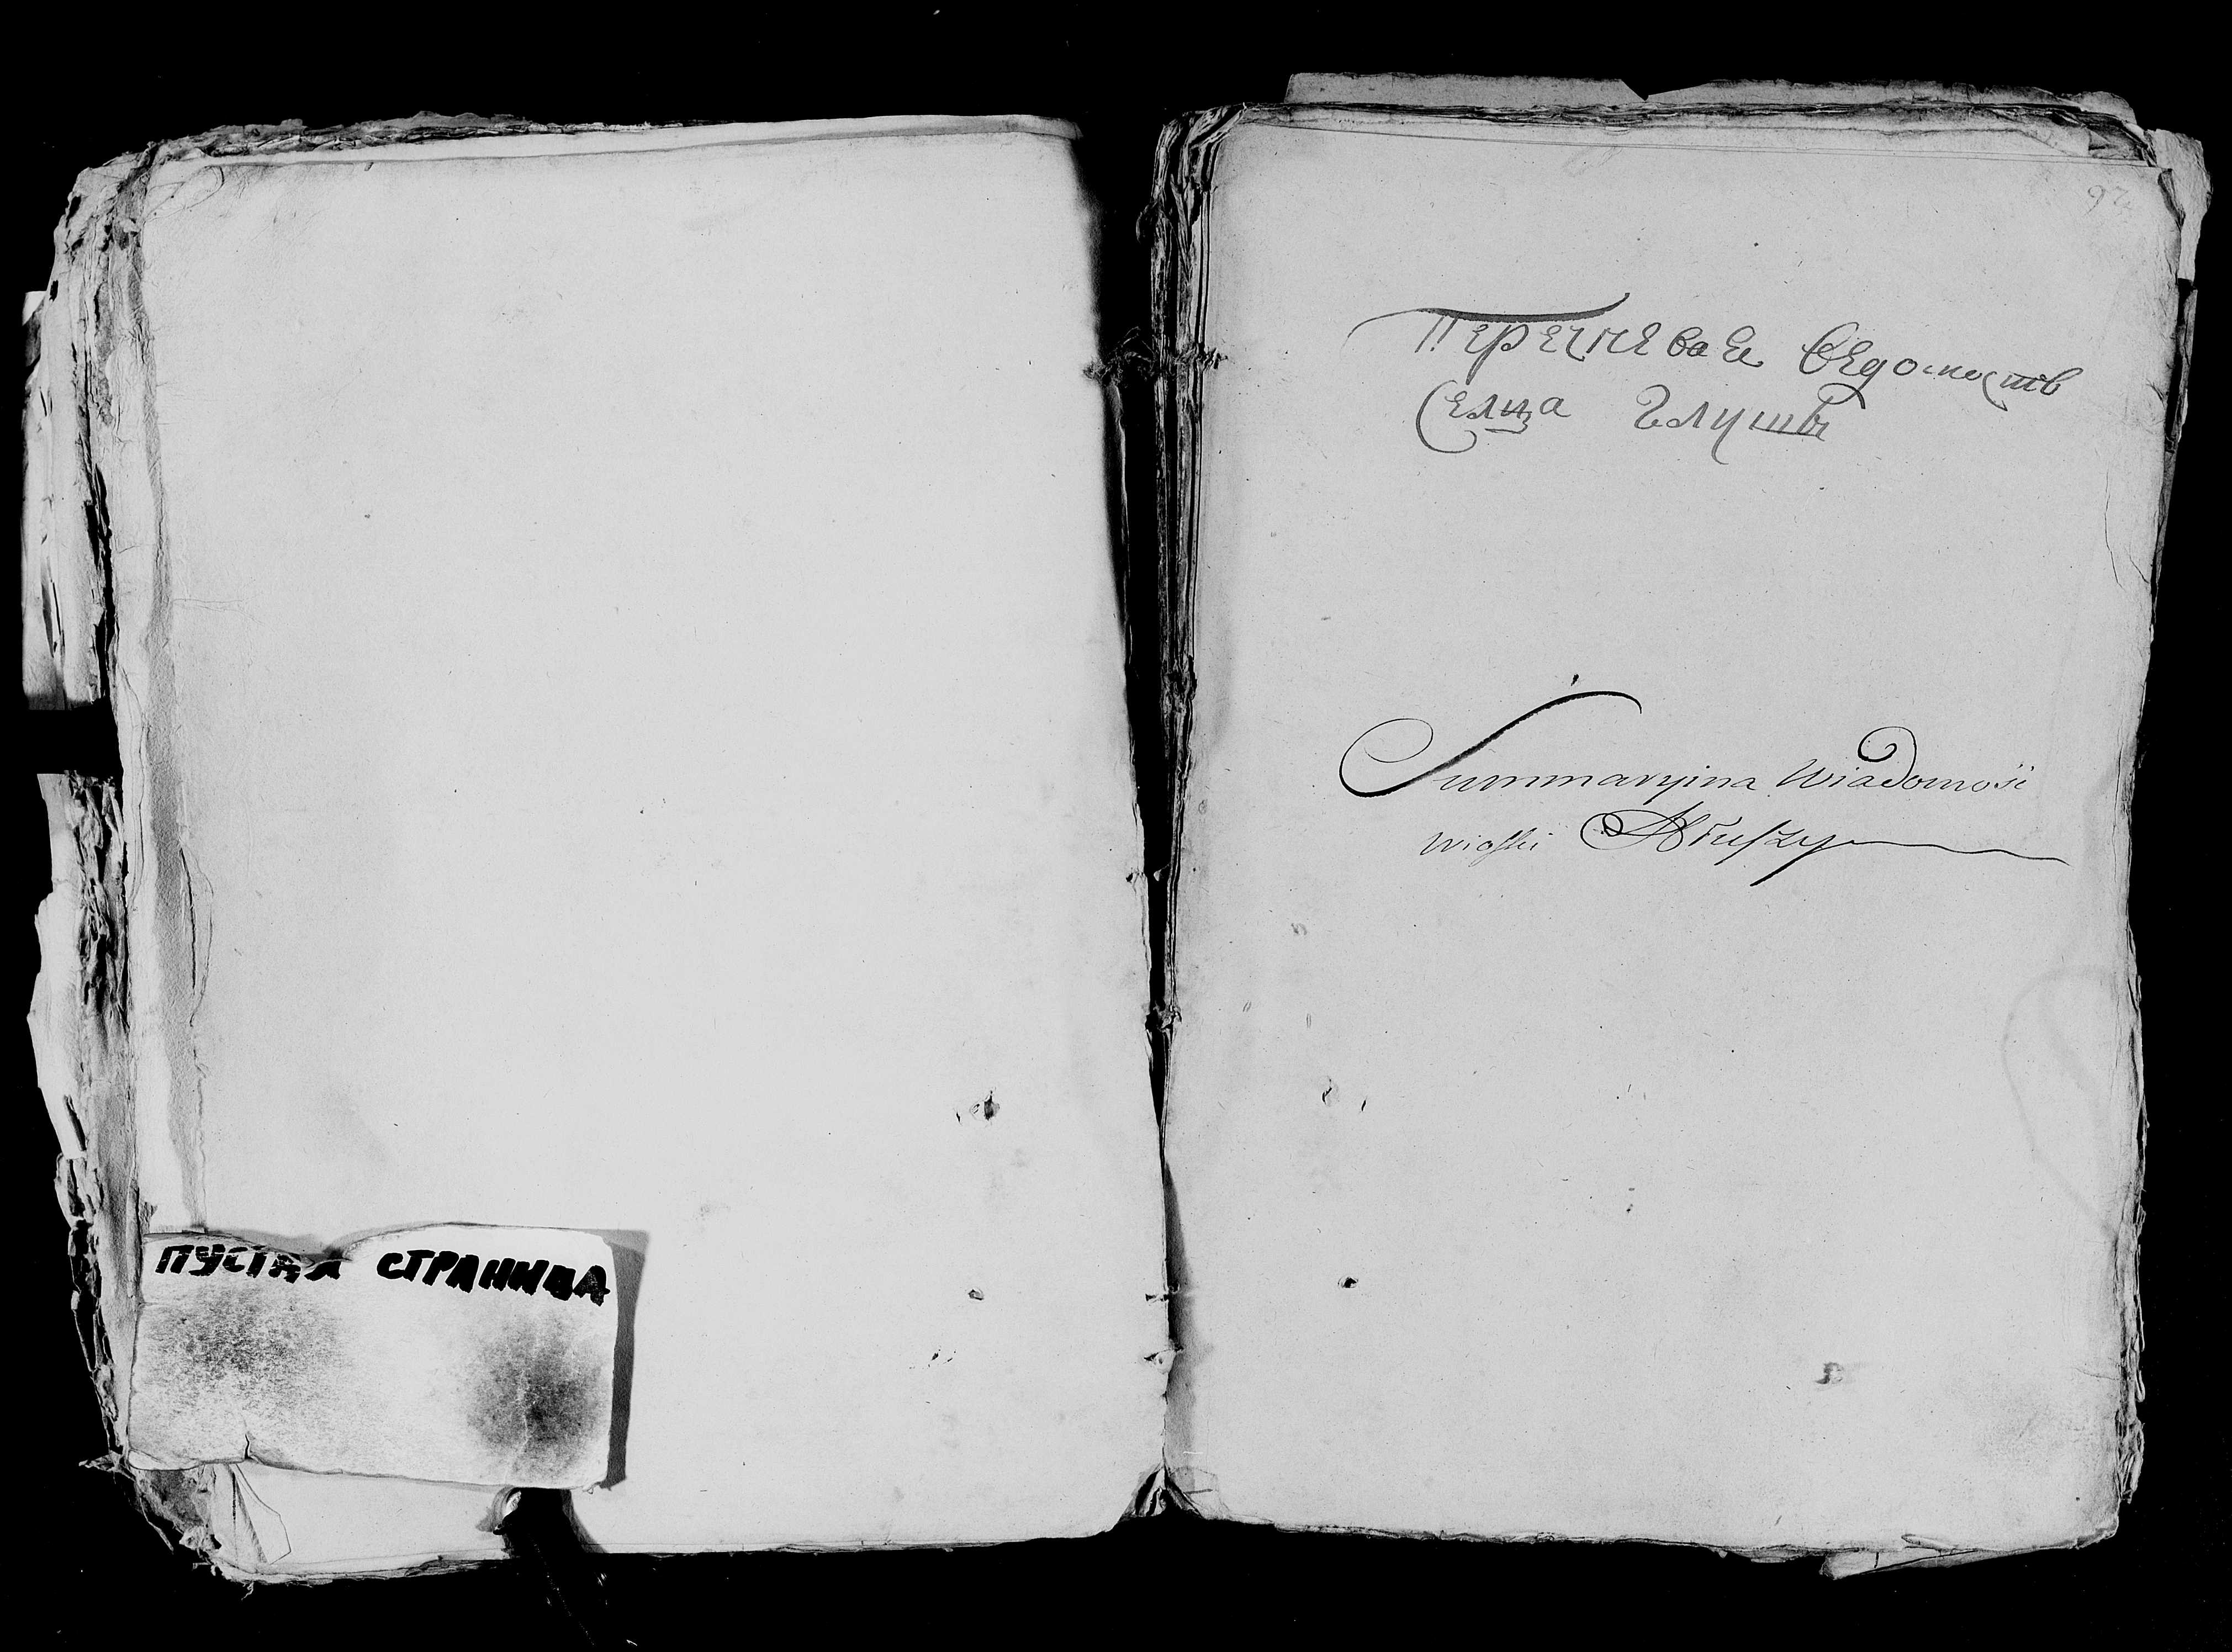 ПУСТАЯ СТРАНИЦА
Перечневае Ведомость
Селца Глушы
Summaryina Wiadomość
wioski Hłuszy